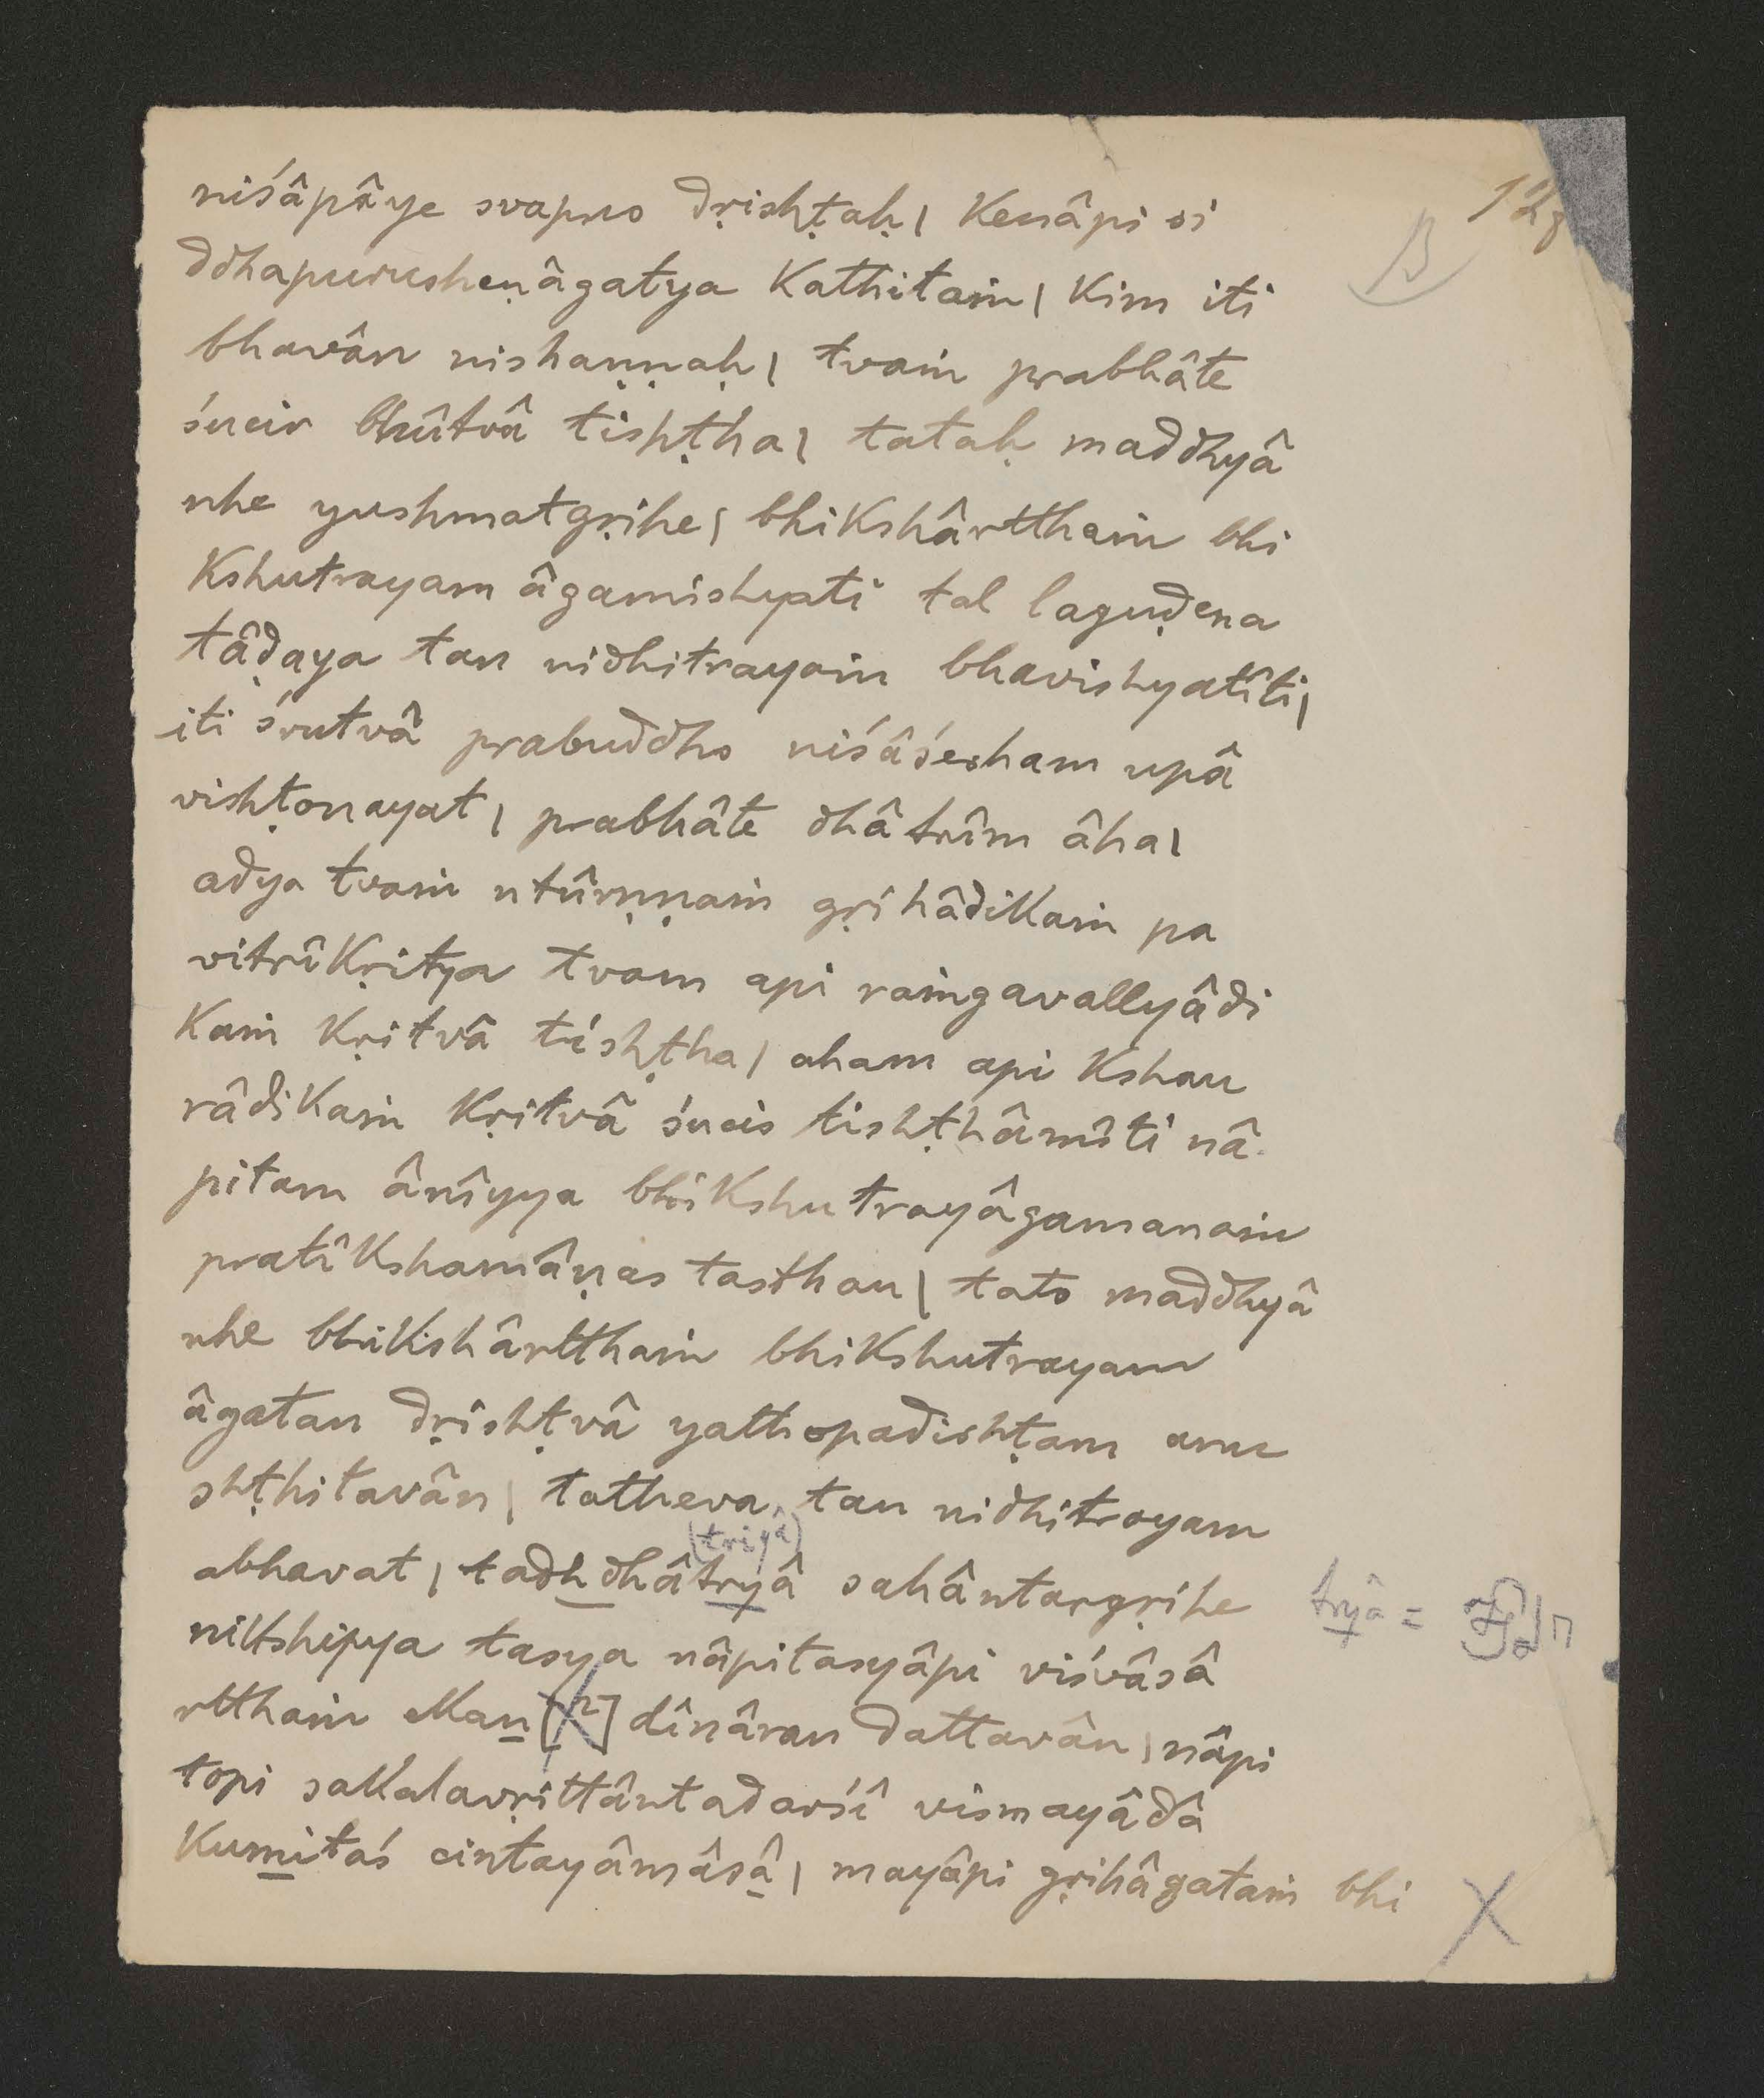 niśâpâye svapno dṛishṭaḥ| kenâpi si
ddhapurusheṇâgatya kathitaṁ| kim iti
bhavân nishaṇṇaḥ| tvaṁ prabhâte
śucir bhûtvâ tishṭha| tataḥ maddhyâ
nhe yushmatgṛihe| bhikshârtthaṁ bhi
kshutrayam âgamishyati tal laguḍena
tâḍaya tan nidhitrayaṁ bhavishyatîti|
iti śrutvâ prabuddho niśâśesham upâ
vishṭonayat| prabhâte dhâtrîm âha|
adya tvaṁ ntûrṇṇaṁ gṛihâdikaṁ pa
vitrîkṛitya tvam api raṁgavallyâdi
kaṁ kṛitvâ tishṭha| aham api kshau
râdikaṁ kṛitvâ śucis tishṭhâmîti nâ
pitam ânîyya bhikshutrayâgamanaṁ
pratîkshamâṇas tasthau| tato maddhyâ
nhe bhikshârtthaṁ bhikshutrayam
âgatan dṛishṭvâ yathopadishṭam anu
shṭhitavân| tatheva tan nidhitrayam
(triyâ)
abhavat| tadh dhâtryâ sahântargṛihe tryâ =
nikshipya tasya nâpitasyâpi viśvâsâ
rtthaṁ Man[n] dînâran dattavân| nâpi
topi sakalavṛittântadarśî vismayâdâ
kumitaś cintayâmâsâ| mayâpi gṛihâgataṁ bhi X